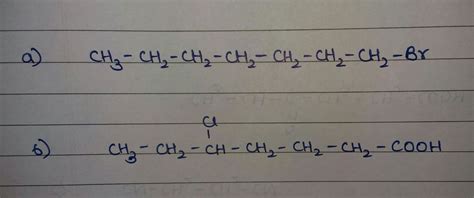 a) CH₃-CH₂-CH₂-CH₂-CH₂-CH₂-CH₂-Br
Cl
b) CH₃-CH₂-CH-CH₂-CH₂-CH₂-COOH